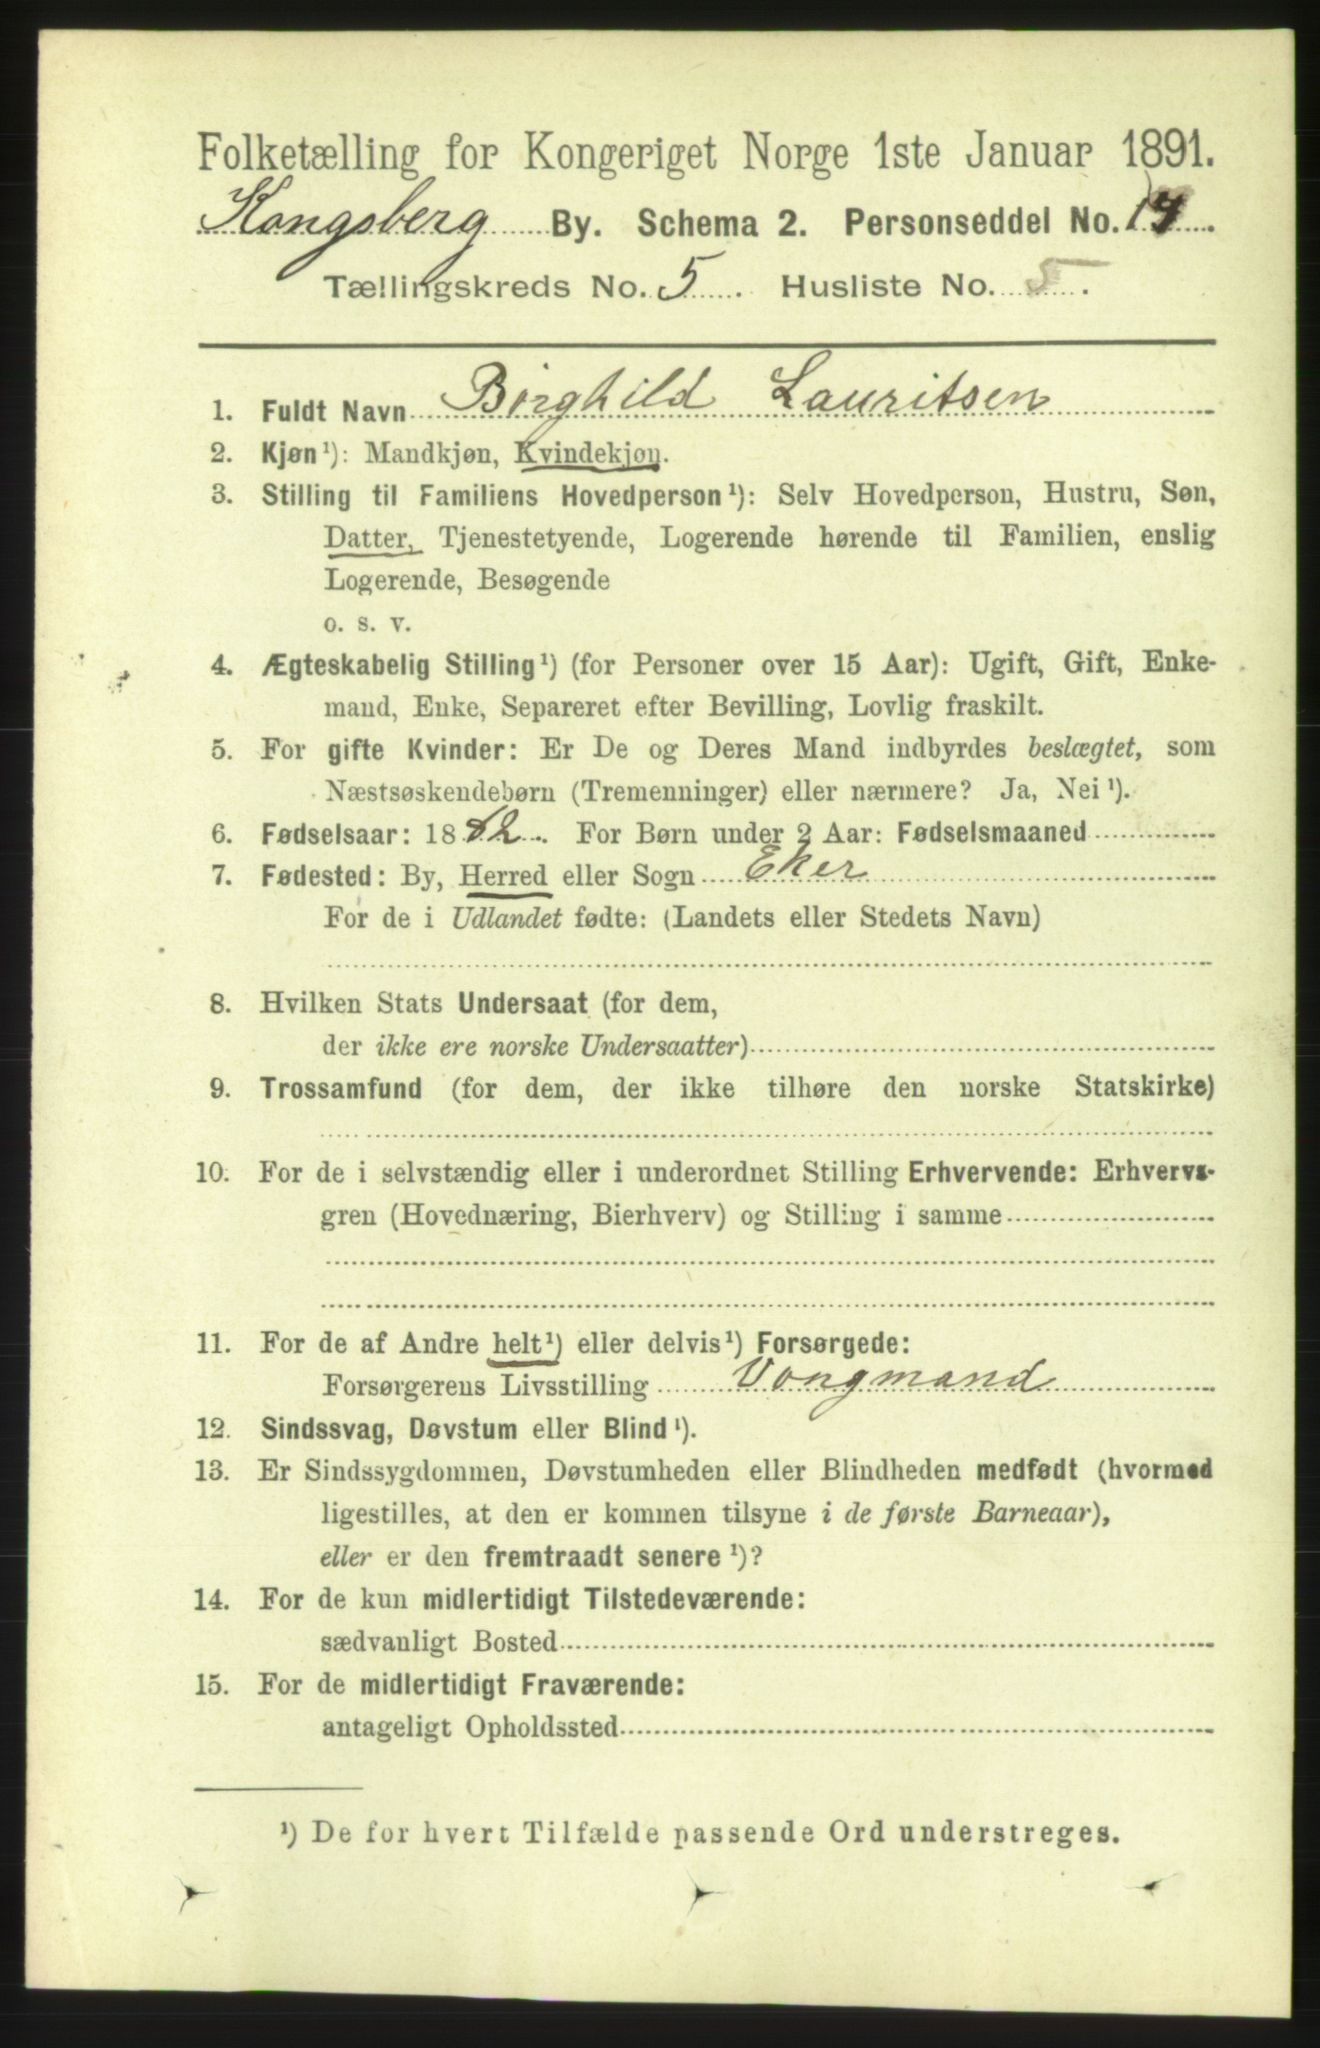 Folketælling for Kongeriget Norge 1ste Januar 1891.
Kongsberg By. Schema 2. Personseddel No. 17.
Tællingskreds No. 5. Husliste No. 5.
1. Fuldt Navn Borghild Lauritsen
2. Kjøn¹): Mandkjøn, Kvindekjøn.
3. Stilling til Familiens Hovedperson¹): Selv Hovedperson, Hustru, Søn,
Datter, Tjenestetyende, Logerende hørende til Familien, enslig
Logerende, Besøgende
o. s. v.
4. Ægteskabelig Stilling¹) (for Personer over 15 Aar): Ugift, Gift, Enke-
mand, Enke, Separeret efter Bevilling, Lovlig fraskilt.
5. For gifte Kvinder: Er De og Deres Mand indbyrdes beslægtet, som
Næstsøskendebørn (Tremenninger) eller nærmere? Ja, Nei¹).
6. Fødselsaar: 1882. For Børn under 2 Aar: Fødselsmaaned
7. Fødested: By, Herred eller Sogn Eker
For de i Udlandet fødte: (Landets eller Stedets Navn)
8. Hvilken Stats Undersaat (for dem,
der ikke ere norske Undersaatter)
9. Trossamfund (for dem, der ikke tilhøre den norske Statskirke)
10. For de i selvstændig eller i underordnet Stilling Erhvervende: Erhvervs-
gren (Hovednæring, Bierhverv) og Stilling i samme
11. For de af Andre helt¹) eller delvis¹) Forsørgede:
Forsørgerens Livsstilling Vongmand
12. Sindssvag, Døvstum eller Blind¹).
13. Er Sindssygdommen, Døvstumheden eller Blindheden medfødt (hvormed
ligestilles, at den er kommen tilsyne i de første Barneaar),
eller er den fremtraadt senere¹)?
14. For de kun midlertidigt Tilstedeværende:
sædvanligt Bosted
15. For de midlertidigt Fraværende:
antageligt Opholdssted
¹) De for hvert Tilfælde passende Ord understreges.